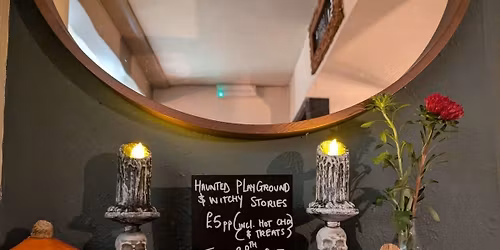 HAUNTED PLAYGROUND
& WITCHY STORIES
£5pp (INCL. HOT CHO
& TREATS)